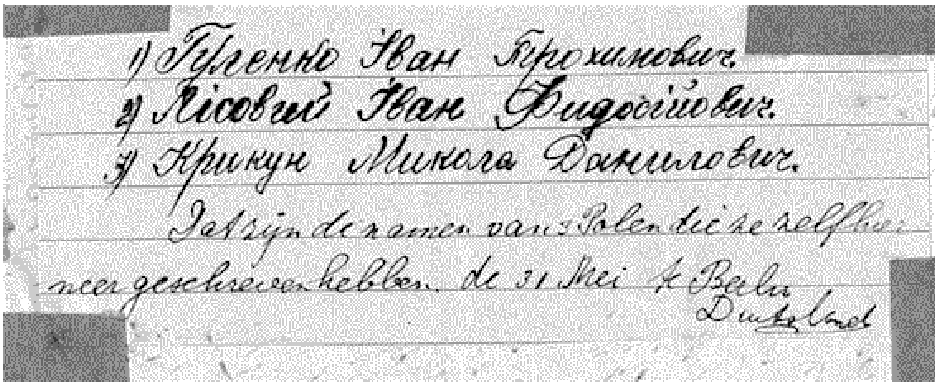 1) Гуленко Іван Трохимович.
2) Лісовий Іван Фидосійович.
3) Крикун Микола Данилович.
Dat zijn de namen van 3 Polen die ze zelf hier
neer geschreven hebben. de 31 Mei te Berlin
Duitsland